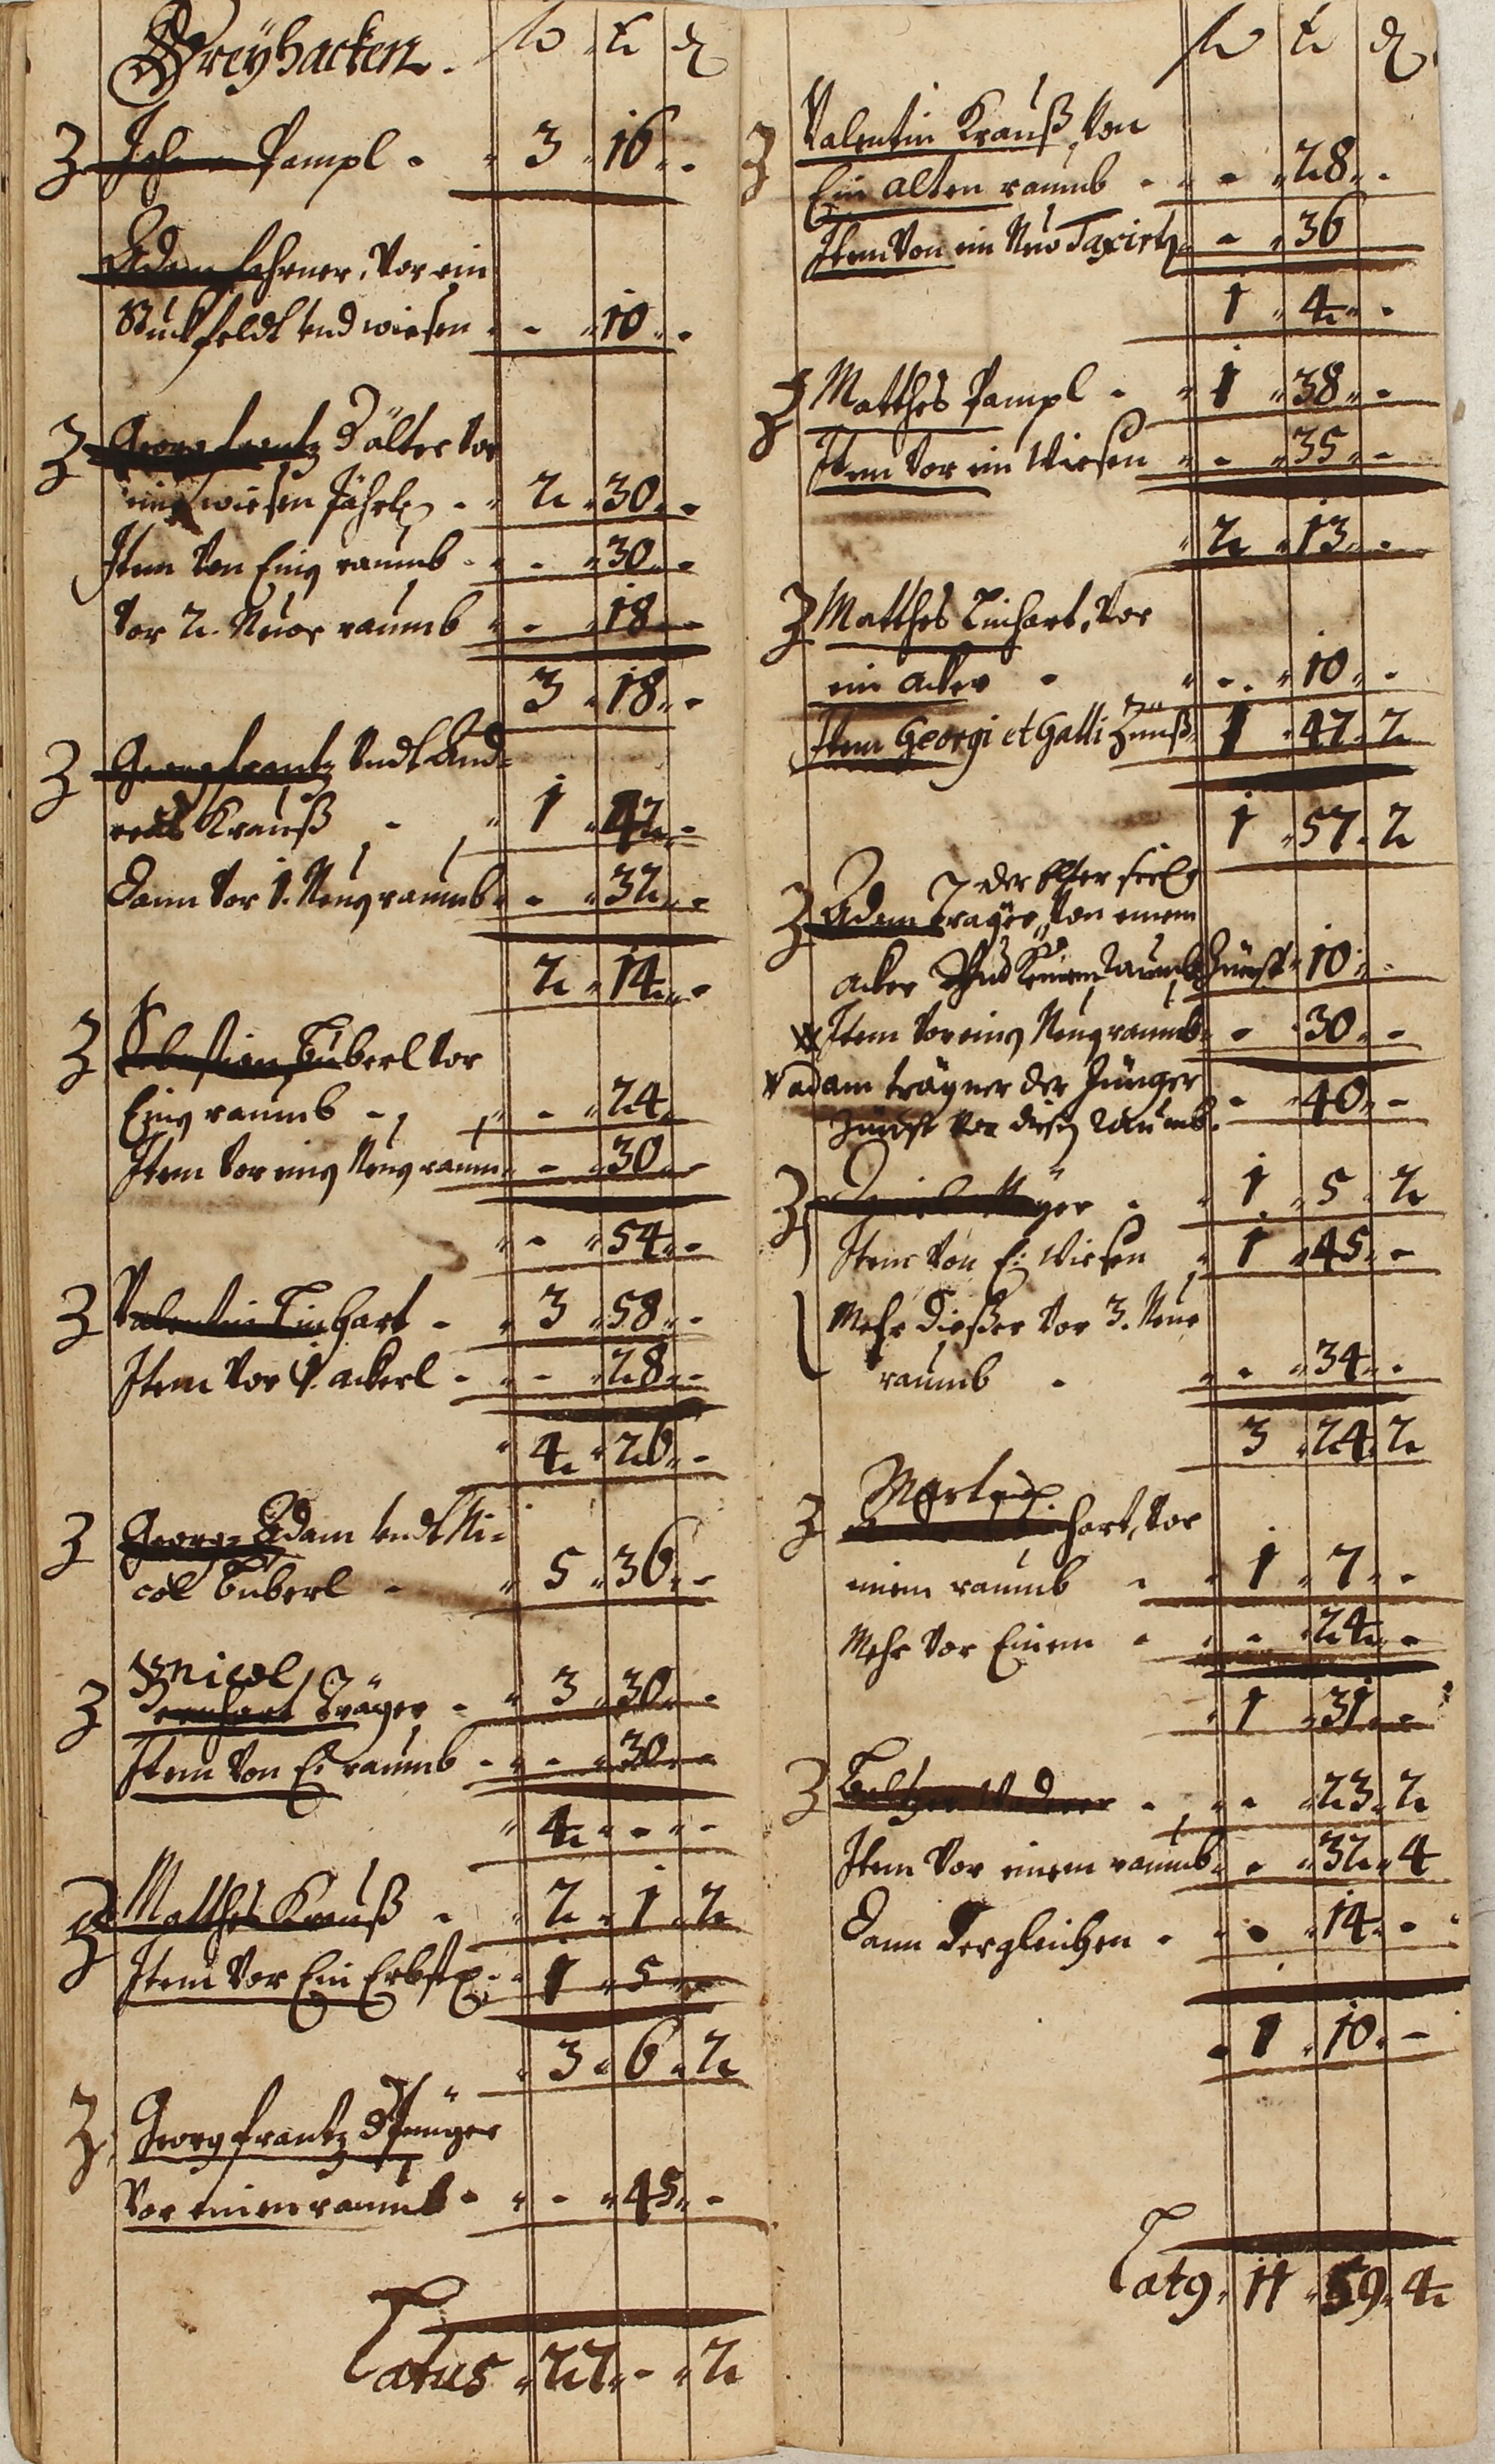 Greyhacken. fl kr ₰
Z Joh Pampl 3 16 -
Adam Lehrner, Vor ein
Stuckfeldt vnd wiesen - 10 -
Z Georg frantz d älter Vor
eine wiesen Jährl 2 30 -
Item Von Einȝ raumb - 30 -
Vor 2. Neue raumb - 18 -
3 18 -
Z Georg frantz Vndt And=
reas Krauß 1 42 -
Dann Vor 1. Neuȝ raumb - 32 -
2 14 -
Z Sebastian Tüberl Vor
Einȝ raumb - 24
Item Vor einȝ Neuȝ raum - 30 -
- 54 -
Z Valentin Linhart 3 58 -
Item Vor 1. ackerl - 28 -
4 26 -
Z Georg Adam Vndt Ni=
col Tüberl 5 36 -
Nicol
Z Bernhart Träger 3 30 -
Item Von Ei raumb - 30 -
4 - -
Z Matthes Krauß 2 1 2
Item Vor Ein Erbst 1 5 -
3 6 2
Z Georg frantz d Jünger
Vor einen raumb - 45 -
Latus 27 - 2
fl kr ₰
Z Valentin Krauß, Von
Ein alten raumb - 28 -
Item Von ein Neu Taxirt - 36
1 4 -
Z Matthes Pampl 1 38 -
Item Vor ein Wiesen - 35 -
2 13 -
Z Matthes Linhart, Vor
ein acker - 10 -
Item Georgi et Galli Zinnß 1 47 2
1 57 2
der Elter
Z Adam Träger, Von einem
acker Vnd Raumb Zünst 10 -
Item Vor einȝ Neuȝ raumb - 30 -
adam trägner der Jünger - 40 -
Zünst Vor disȝ Raumb.
Z 1 5 2
Item Von Ei Wiesen 1 45 -
Mehr dießer Vor 3. Neue
raumb - 34 -
3 24 2
Z Linhart, Vor
einem raumb 1 7 -
Mehr Vor Einem - 24 -
1 31 -
Z Baltzer - 23 2
Item Vor einem raumb - 32 4
Dann dergleichen - 14 -
1 10 -
Latȝ 11 59 4